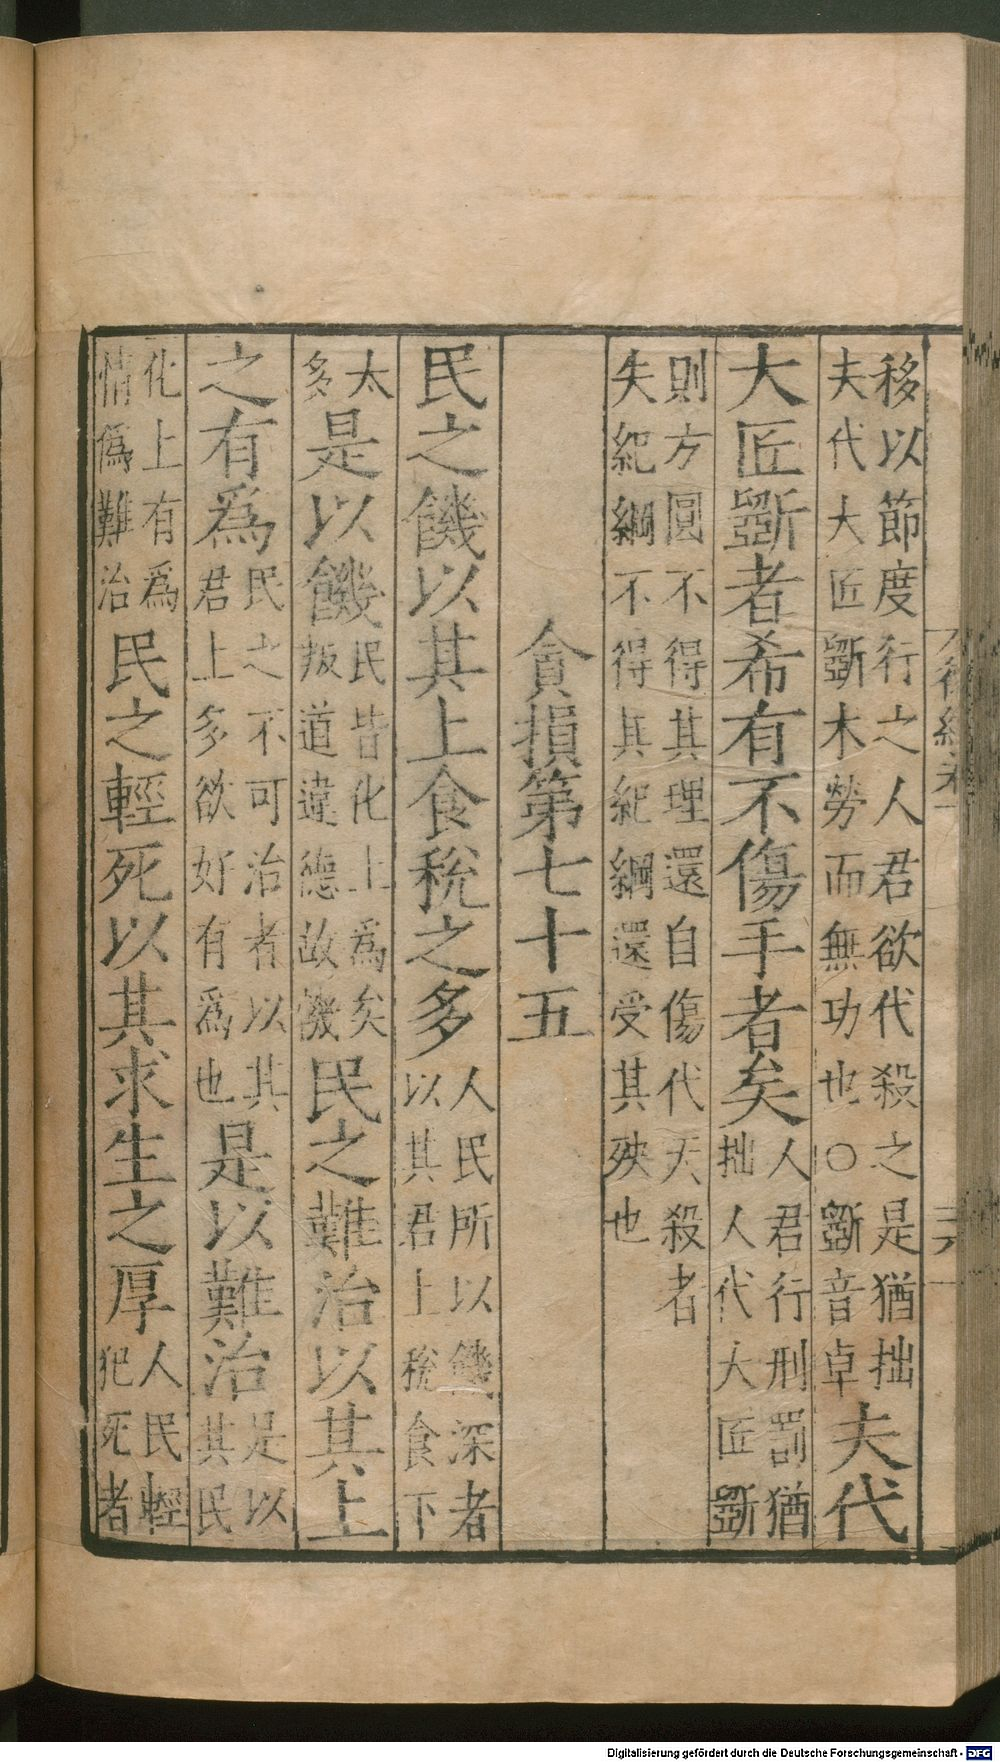 移以節度行之人君欲代殺之是猶拙
夫代大匠斲木勞而無功也○斲音卓
夫代
大匠斲者希有不傷手者矣
人君行刑罰猶
拙人代大匠斲
則方圓不得其理還自傷代天殺者
失紀綱不得其紀綱還受其殃也
貪損第七十五
民之饑以其上食稅之多
人民所以饑深者
以其君上稅食下
太
多
是以饑
民皆化上為矣
叛道違德故饑
民之難治以其上
之有為
民之不可治者以其
君上多欲好有為也
是以難治
是以
其民
化上有為
情偽難治
民之輕死以其求生之厚
人民輕
犯死者
Digitalisierung gefördert durch die Deutsche Forschungsgemeinschaft - DFG